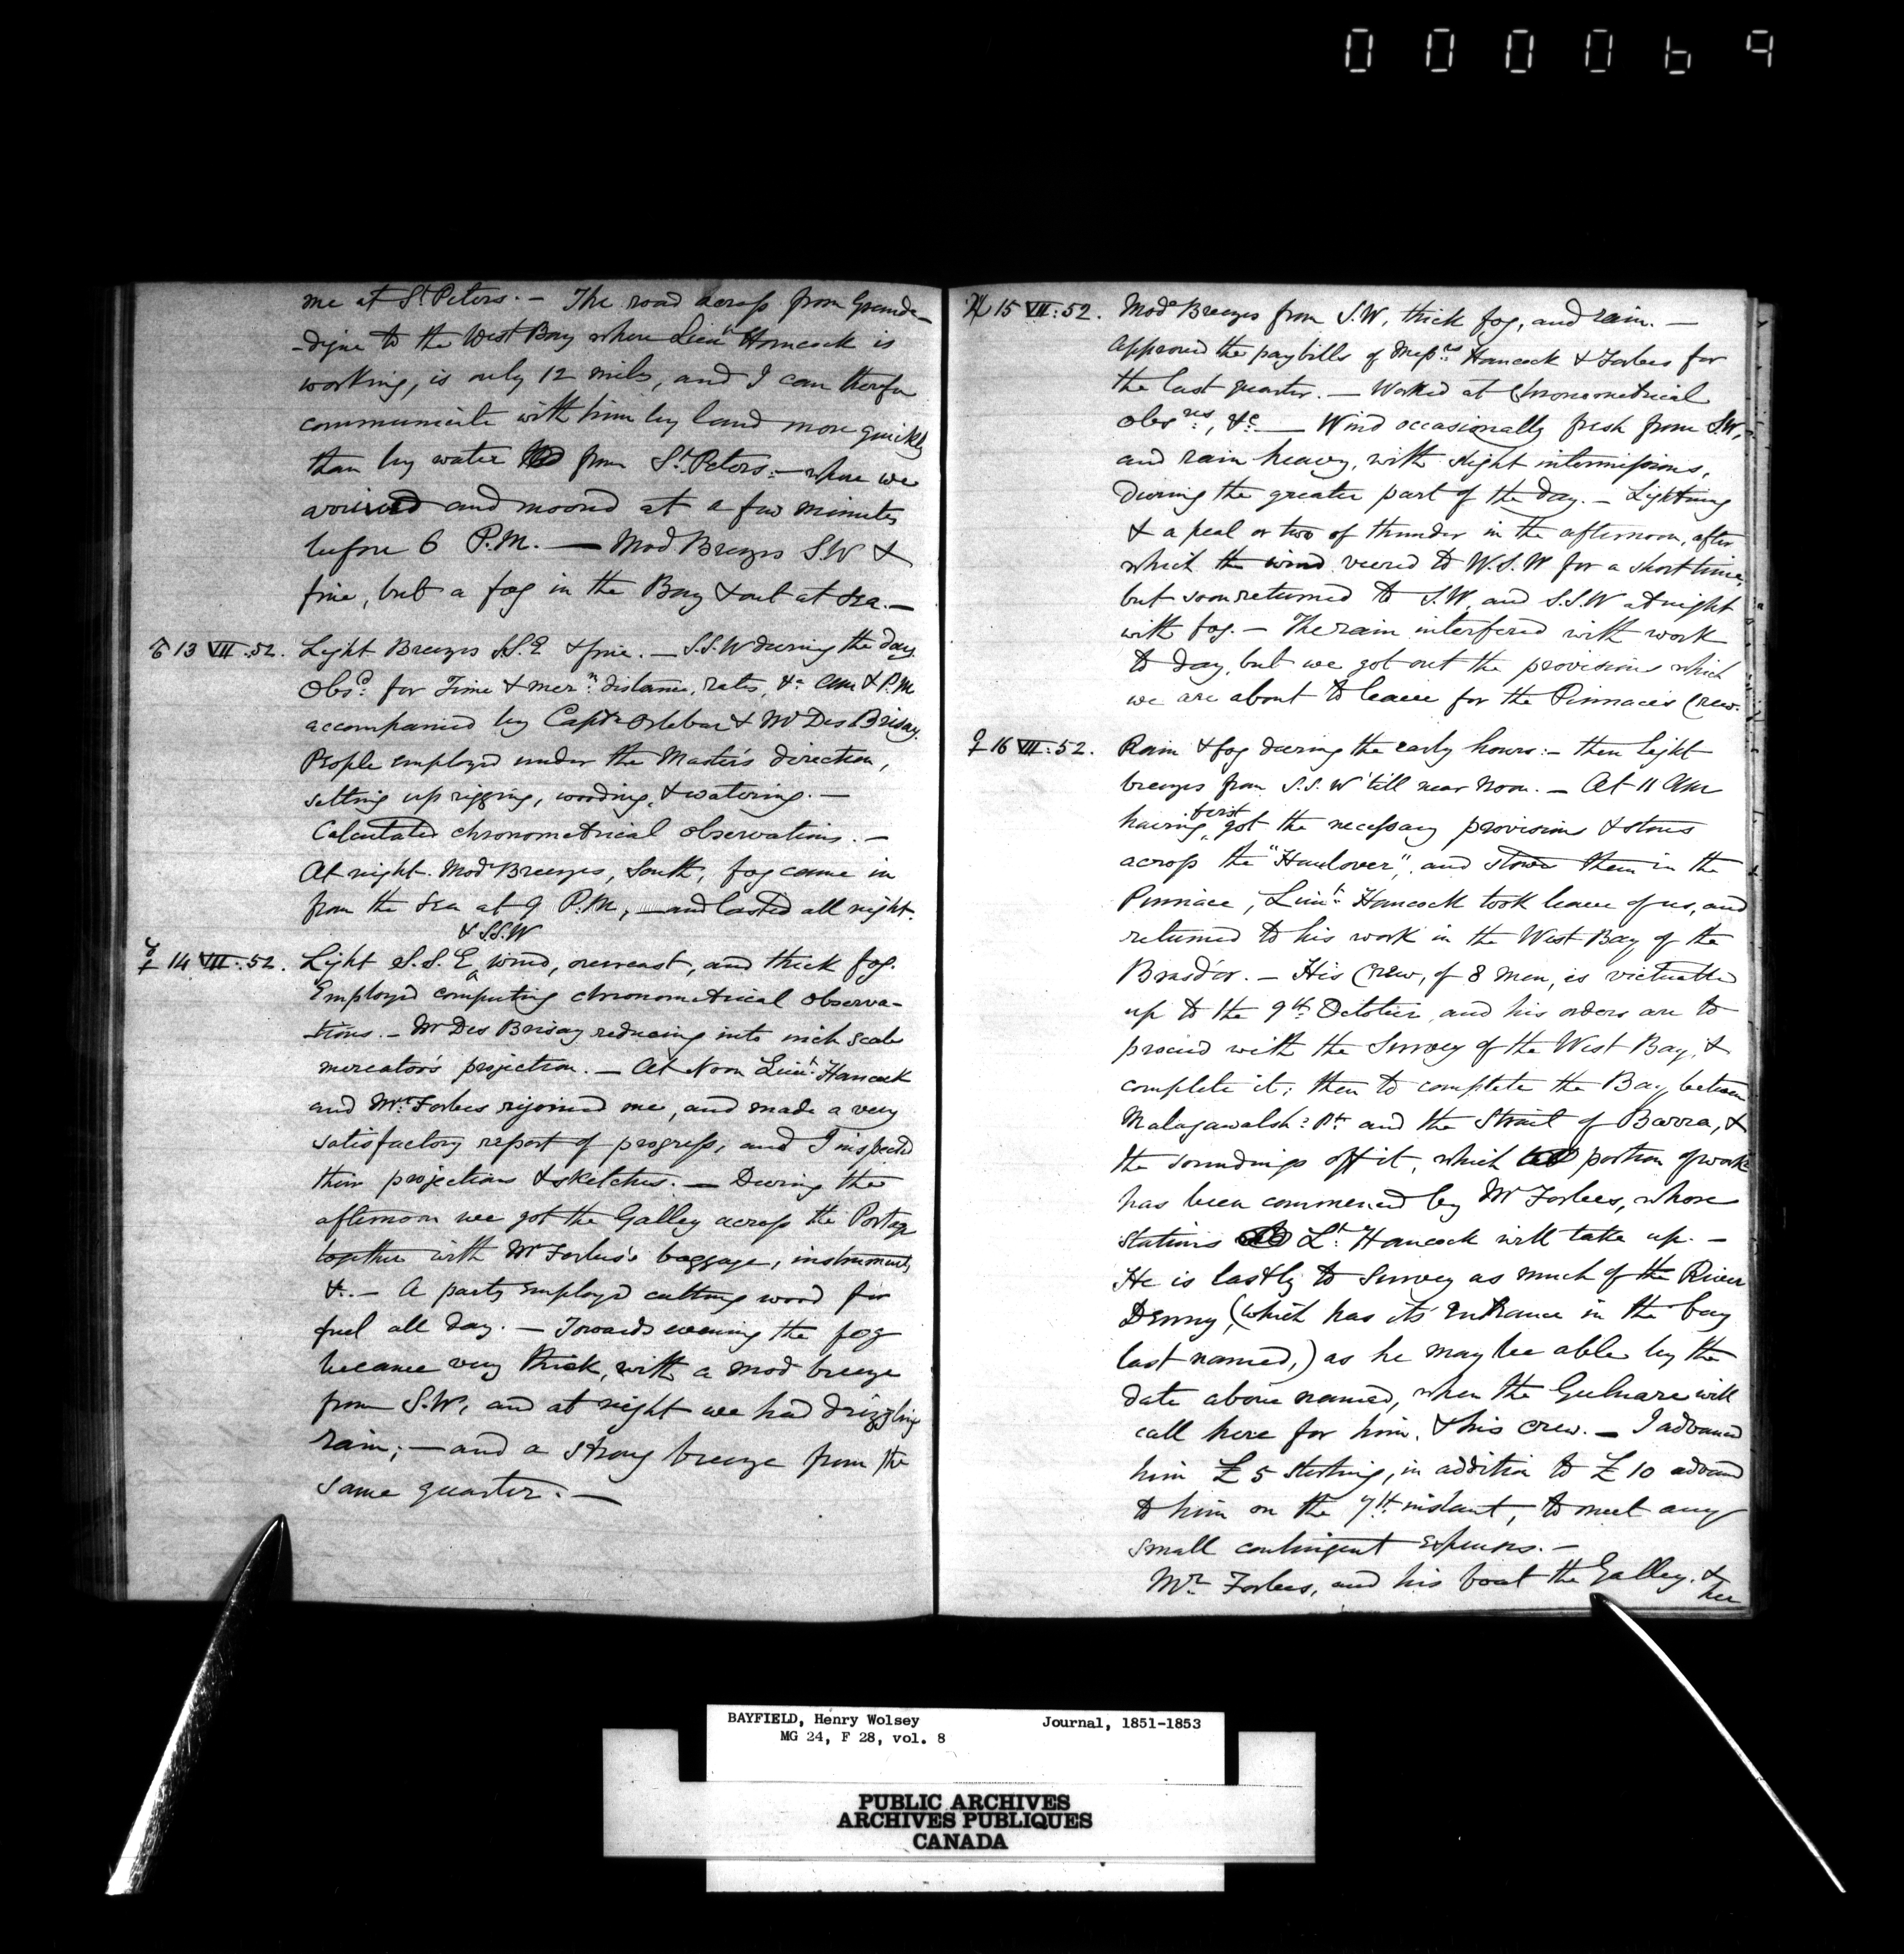 000069
me at St Peters. — The road across from Grande-
-digue to the West Bay where Lieut Hancock is
working, is only 12 miles, and I can therefore
communicate with him by land more quickly
than by water from St Peters: — where we
arrived and moored at a few minutes
before 6 P.M. — Mod Breezes S.W &
fine, but a fog in the Bay & out at sea. —
♂ 13 VII:52. Light Breezes S.S.E & fine. — S.S.W during the day.
Obsd for Time & mern distance, rates, &c am & P.M
accompanied by Captn Orlebar & Mr Des Brisay.
People employed under the Master's direction,
setting up rigging, wooding, & watering. —
Calculated chronometrical observations. —
At night Mode Breezes, South, fog came in
from the sea at 9 P.M, — and lasted all night.
& S.S.W
☿ 14 VII:52. Light S.S.E wind, overcast, and thick fog.
Employed computing chronometrical observa-
tions. — Mr Des Brisay reducing into inch scale
mercator's projection. — At Noon Lieut Hancock
and Mr Forbes rejoined me, and made a very
satisfactory report of progress, and I inspected
their projections & sketches. — During the
afternoon we got the Galley across the Portage
together with Mr Forbes's baggage, instruments
&c. — A party employed cutting wood for
fuel all day. — Towards evening the fog
became very thick, with a mod breeze
from S.W, and at night we had drizzling
rain; — and a strong breeze from the
same quarter. —
♃ 15 VII:52. Mode Breezes from S.W, thick fog, and rain. —
Approved the pay bills of Messrs Hancock & Forbes for
the last quarter. — Worked at Chronometrical
Obsvns, &c — Wind occasionally fresh from S.W,
and rain heavy, with slight intermissions,
during the greater part of the day. — Lightning
& a peal or two of thunder in the afternoon, after
which the wind veered to W.S.W for a short time,
but soon returned to S.W, and S.S.W at night
with fog. — The rain interfered with work
to day, but we got out the provisions which
we are about to leave for the Pinnace's Crew.
♀ 16 VII:52. Rain & fog during the early hours: — then light
breezes from S.S.W 'till near noon. — At 11 am
having first got the necessary provisions & stores
across the "Haulover", and stowed them in the
Pinnace, Lieut Hancock took leave of us, and
returned to his work in the West Bay of the
Brasd'or. — His Crew, of 8 men, is victualled
up to the 9th October, and his orders are to
proceed with the Survey of the West Bay, &
complete it; then to complete the Bay between
Malagawatsh: Pt and the Strait of Barra, &
the soundings off it, which portion of work
has been commenced by Mr Forbes, whose
stations Lt Hancock will take up. —
He is lastly to Survey as much of the River
Denny, (which has its entrance in the bay
last named,) as he may be able by the
date above named, when the Gulnare will
call here for him, & his crew. — I advanced
him £5 sterling, in addition to £10 advanced
to him on the 7th instant, to meet any
small contingent expenses. —
Mr Forbes, and his boat the Galley, &
her
BAYFIELD, Henry Wolsey Journal, 1851-1853
MG 24, F 28, vol. 8
PUBLIC ARCHIVES
ARCHIVES PUBLIQUES
CANADA